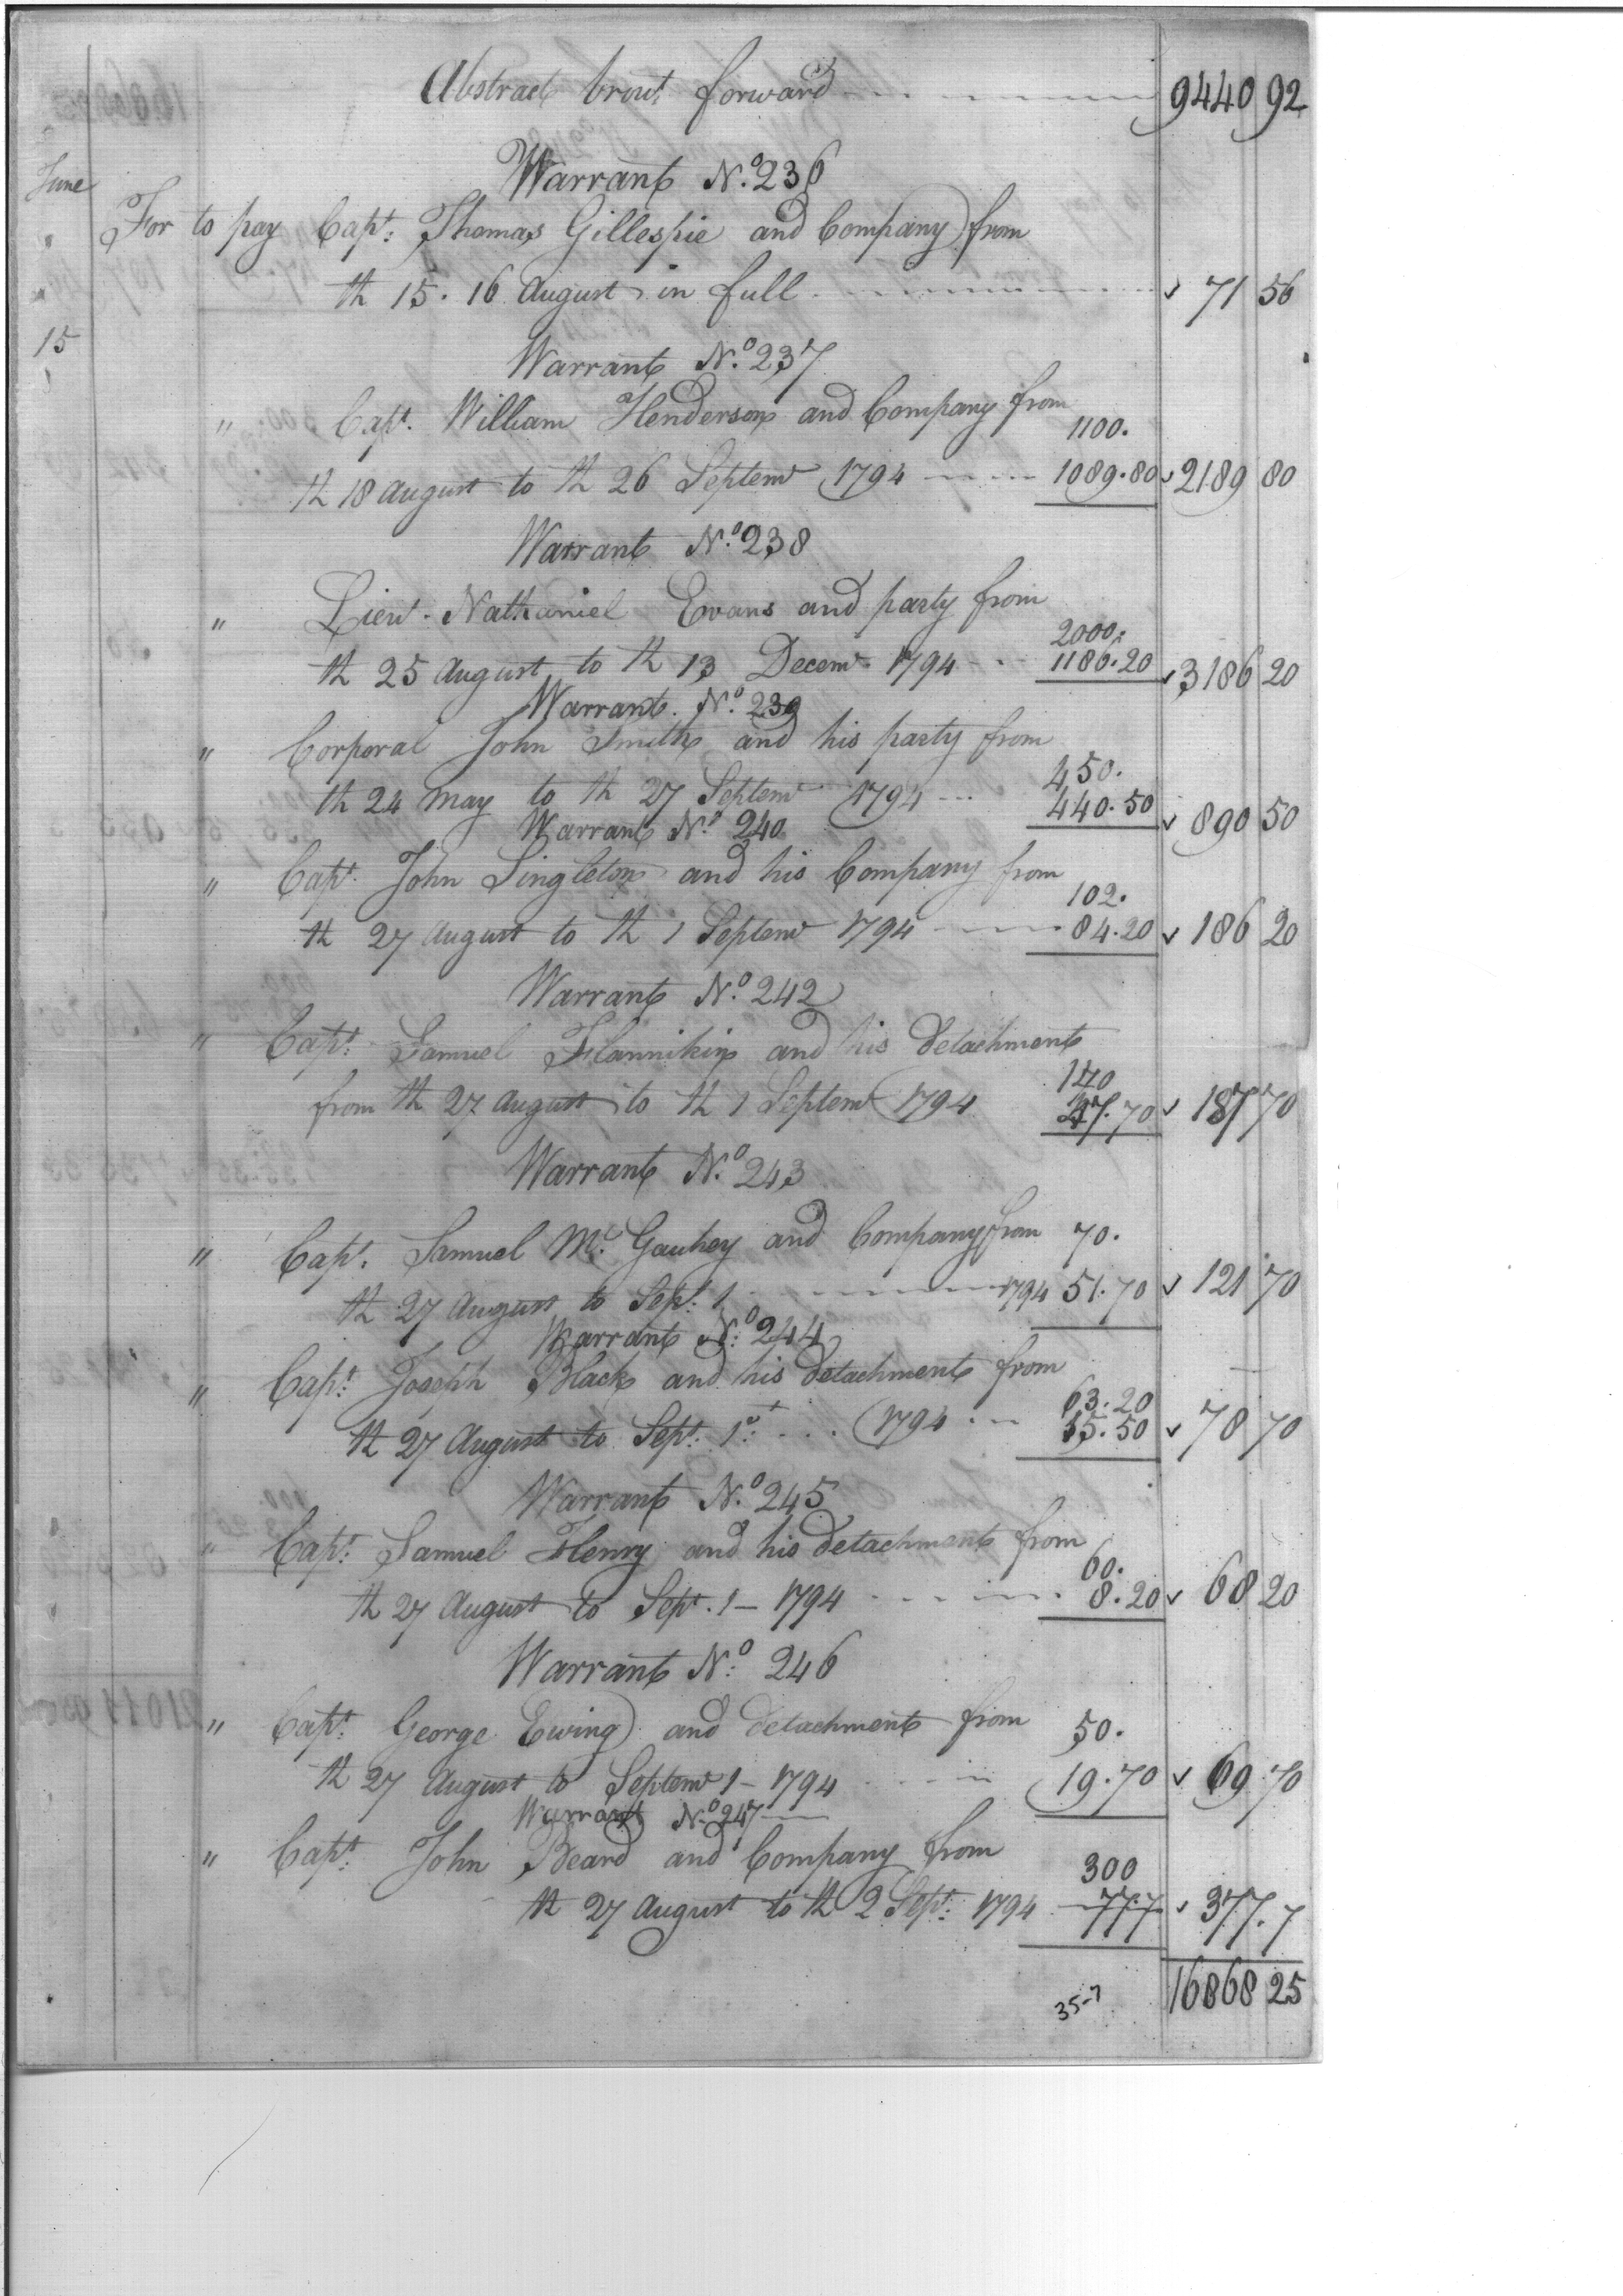 Abstract brout forward 9440 92
Warrant No. 236
June
For to pay Capt: Thomas Gillespie and Company from
th 15. 16 August in full 71 56
15
Warrant No. 237
" Capt. William Henderson and Company from
1100.
th 18 August to th 26 Septemr 1794 1089.80 2189 80
Warrant No. 238
" Lieut. Nathaniel Evans and party from
2000.
th 25 August to th 13 Decemr 1794 1186.20 3186 20
Warrant. No. 239
" Corporal John Smith and his party from
450.
th 24 May to th 27 Septemr 1794 440.50 890 50
Warrant No. 240
" Capt. John Singleton and his Company from
102.
th 27 August to th 1 Septemr 1794 84.20 186 20
Warrant No. 242
" Capt: Samuel Flannikin and his detachment
140
from th 27 August to th 1 Septemr 1794 47.70 187 70
Warrant No. 243
" Capt. Samuel Mc. Gauhey and Company from 70.
th 27 August to Sept. 1 1794 51.70 121 70
Warrant No. 244
" Capt: Joseph Black and his detachment from
63.20
th 27 August to Sept: 1st 1794 15.50 78 70
Warrant No. 245
" Capt: Samuel Henry and his detachment from
60.
th 27 August to Sept. 1 - 1794 8.20 68 20
Warrant No: 246
" Capt: George Ewing and detachment from 50.
th 27 August to Septemr 1 - 1794 19.70 69 70
Warrant No. 247
" Capt: John Beard and Company from
300
th 27 August to th 2 Sept: 1794 77.7 377.7
777
16868 25
35-7